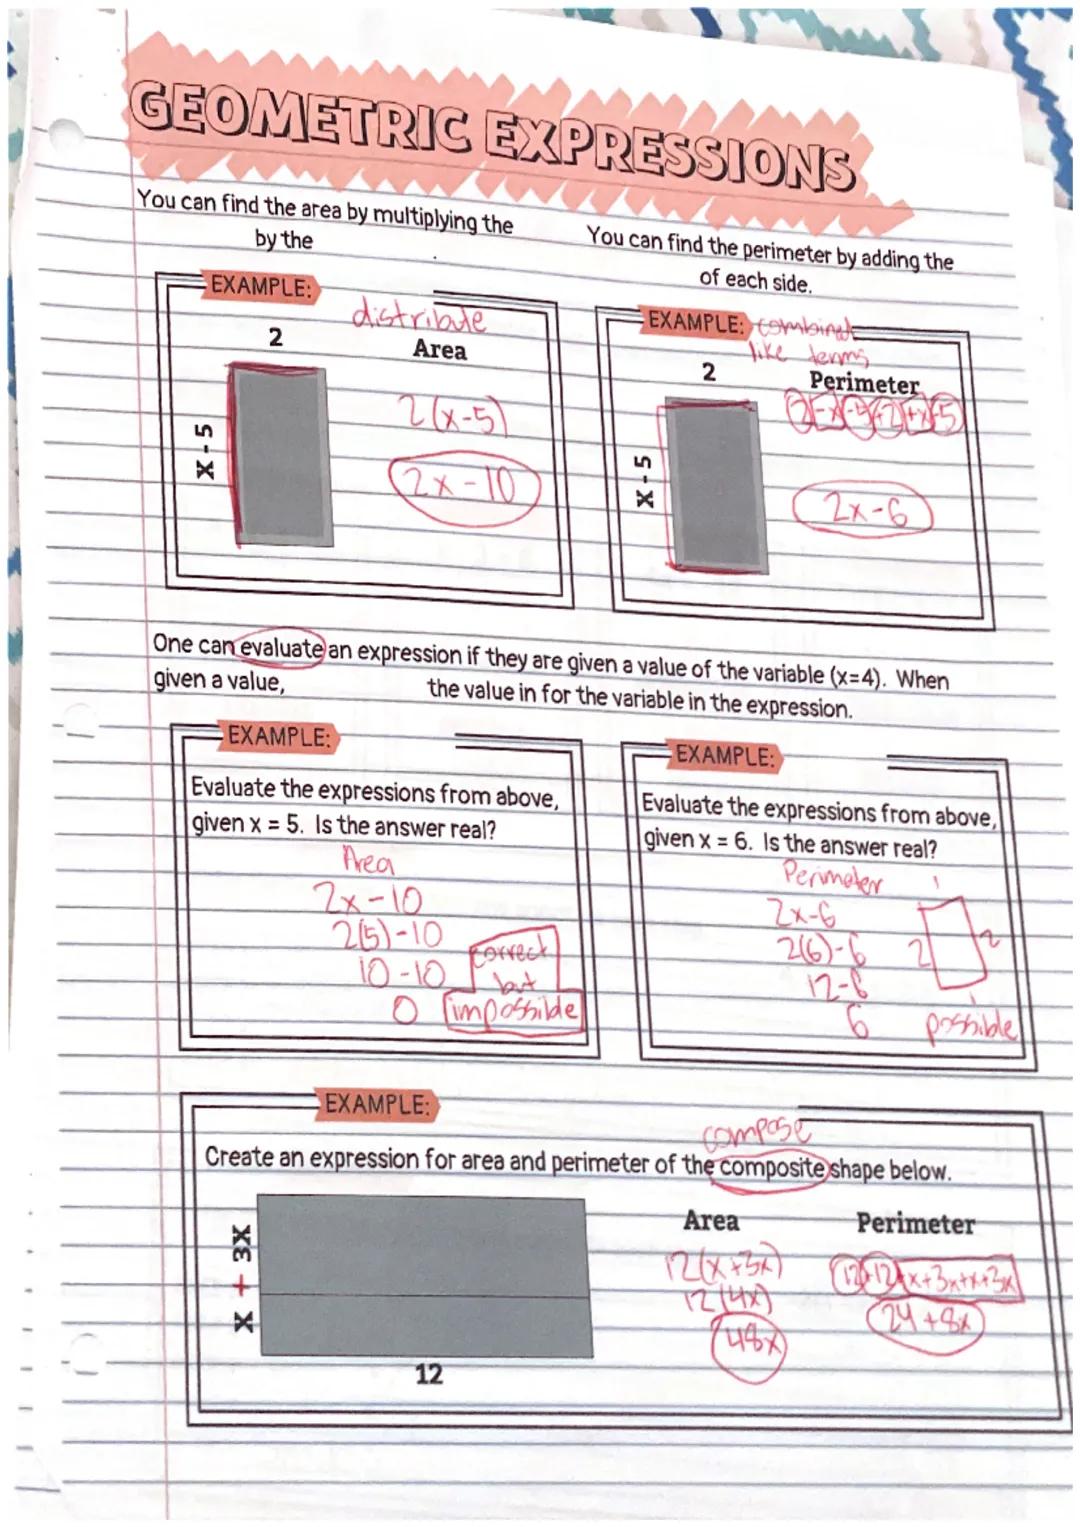 GEOMETRIC EXPRESSIONS
You can find the area by multiplying the
by the .
You can find the perimeter by adding the
of each side.
EXAMPLE:
distribute
2
Area
X - 5
2(x-5)
2x-10
EXAMPLE:
combine
like terms
2
Perimeter
X - 5
2+x-5+2+x-5
2x-6
One can evaluate an expression if they are given a value of the variable (x=4). When
given a value, the value in for the variable in the expression.
EXAMPLE:
Evaluate the expressions from above,
given x = 5. Is the answer real?
Area
2x-10
2(5)-10
10-10
0
correct
but
impossible
EXAMPLE:
Evaluate the expressions from above,
given x = 6. Is the answer real?
Perimeter
2x-6
2(6)-6
12-6
6
1
2
2
1
possible
EXAMPLE:
compose
Create an expression for area and perimeter of the composite shape below.
X + 3X
12
Area
12(x+3x)
12(4x)
48x
Perimeter
12+12+x+3x+x+3x
24+8x